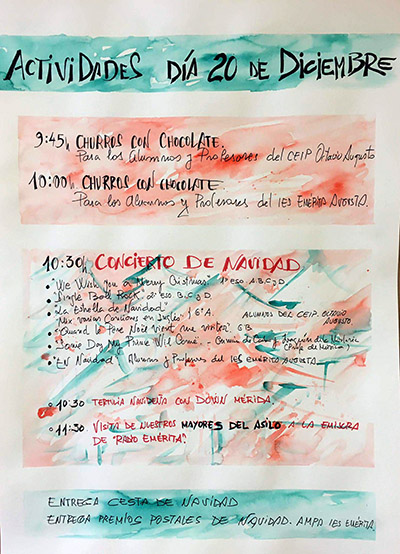 ACTIVIDADES DÍA 20 DE DICIEMBRE
9:45h CHURROS CON CHOCOLATE.
Para los Alumnos y Profesores del CEIP Octavio Augusto
10:00h CHURROS CON CHOCOLATE
Para los Alumnos y Profesores del IES EMÉRITA AUGUSTA.
10:30h CONCIERTO DE NAVIDAD
• "We Wish you a Merry Cristmas" 1º ESO A.B.C y D
• "Jingle Bell Rock" 2º ESO. B.C y D
• "La Estrella de Navidad"
Mix varias Canciones en Inglés 6ºA. ALUMNOS DEL CEIP. OCTAVIO AUGUSTO
• "Quand le Père Noël vient me visiter" 6B
• "Some Day My Prince Will Come" - (Prof. de Música)
• "EN Navidad" Alumnos y Profesores del IES EMÉRITA AUGUSTA
• 10:30 TERTULIA NAVIDEÑA CON DOWN MÉRIDA.
• 11:30 VISITA DE NUESTROS MAYORES DEL ASILO A LA EMISORA
DE "RADIO EMÉRITA".
ENTREGA CESTA DE NAVIDAD
ENTREGA PREMIOS POSTALES DE NAVIDAD. AMPA IES EMÉRITA.